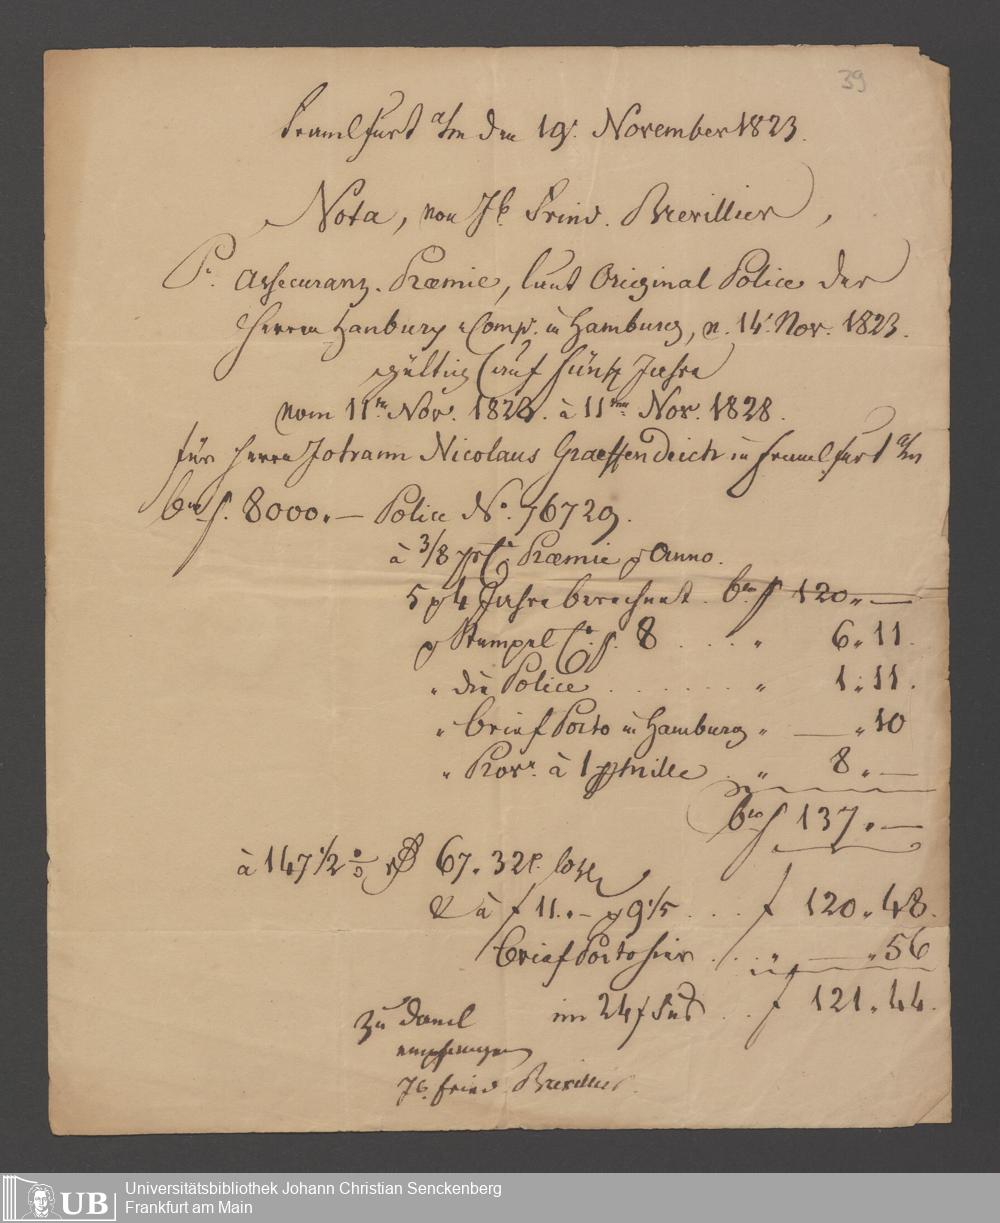 39
Frankfurt a/m den 19t. November 1823.
Nota, von Jb. Fried. Brevillier,
Pr. Assecuranz-Præmie, laut Original Police der
Herren Hanbury & Comp. in Hamburg, v. 14t. Nov. 1823.
gültig auf fünf Jahre
vom 11ten Nov. 1823. à 11ten Nov. 1828.
für Herrn Johann Nicolaus Graeffendeich in Frankfurt a/m
bco f. 8000.— Police No. 76729.
à 3/8 pCt. Præmie p Anno.
5 p 4 Jahre berechnet. bco f 120 „ —
p Stempel Ct. f. 8 . . . . „ 6 „ 11.
„ die Police . . . . . . . „ 1 „ 11.
„ Brief Porto in Hamburg „ — „ 10
„ Prov. à 1 p mille . „ 8 „ —
bco f 137 „ —
à 147 1/2 % 67. 32.
à f 11. „ — p 9 1/5 . . . f 120 „ 48.
Brief Porto hier . . . „ — „ 56
im 24 f Fus . . f 121 „ 44.
zu Danck
empfangen
Jb. Fried. Brevillier.
UB
Universitätsbibliothek Johann Christian Senckenberg
Frankfurt am Main